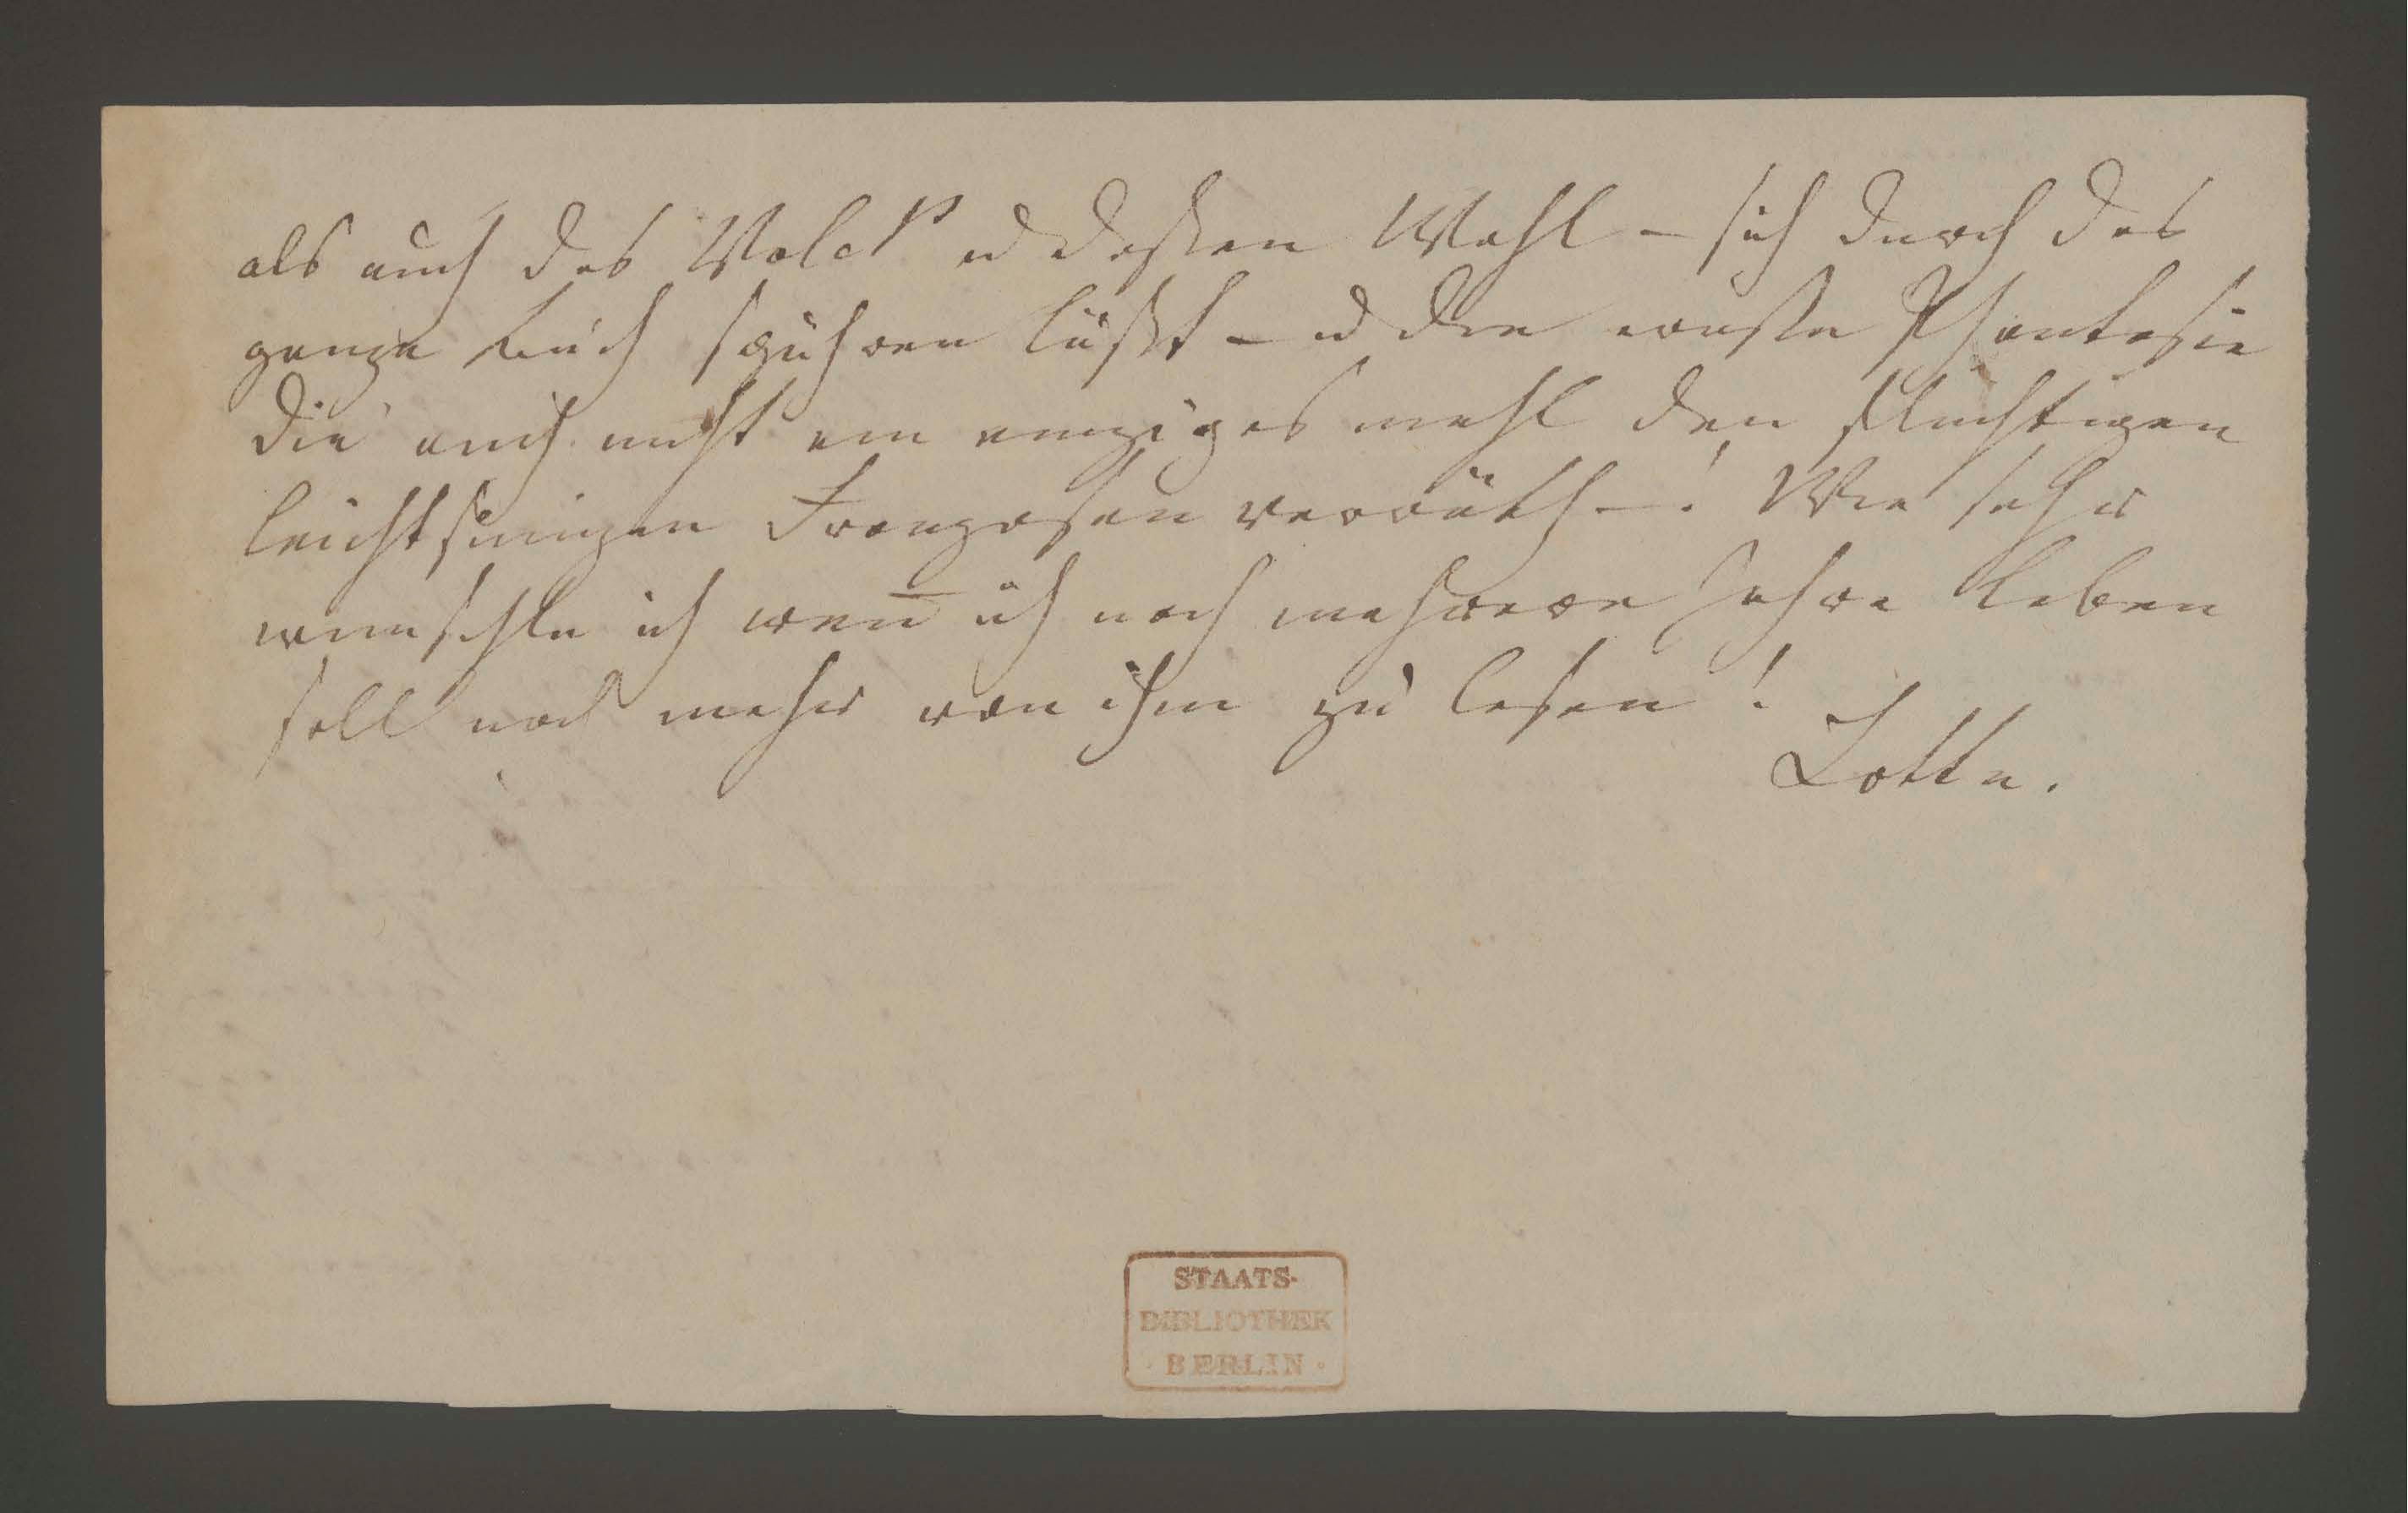 als auch des Volcks u dessen Wohl – sich durch das
ganze buch spühren läßt – u die ernste Phantasie
die auch nicht ein einziges mahl den fluchtigen
leichtsinigen Franzosen verräth –! Wie sehr
wunschte ich wen̅ ich noch mehrere Jahre leben
soll noch mehr von ihm zu lesen!
Lotte.
STAATS-
BIBLIOTHEK
· BERLIN ·